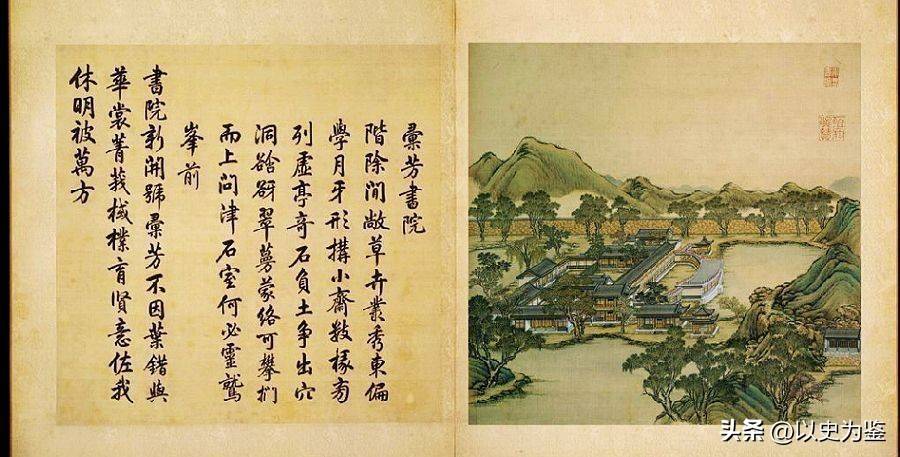 彚芳書院
階除閒敞草卉叢秀東偏
學月牙形搆小齋數椽旁
列虛亭奇石負土争出穴
洞谽谺翠蔓蒙絡可攀捫
而上問津石室何必靈鷲
峯前
書院新開號彚芳不因葉錯與
華裳菁莪棫樸育賢意佐我
休明被萬方
头条 @以史为鉴